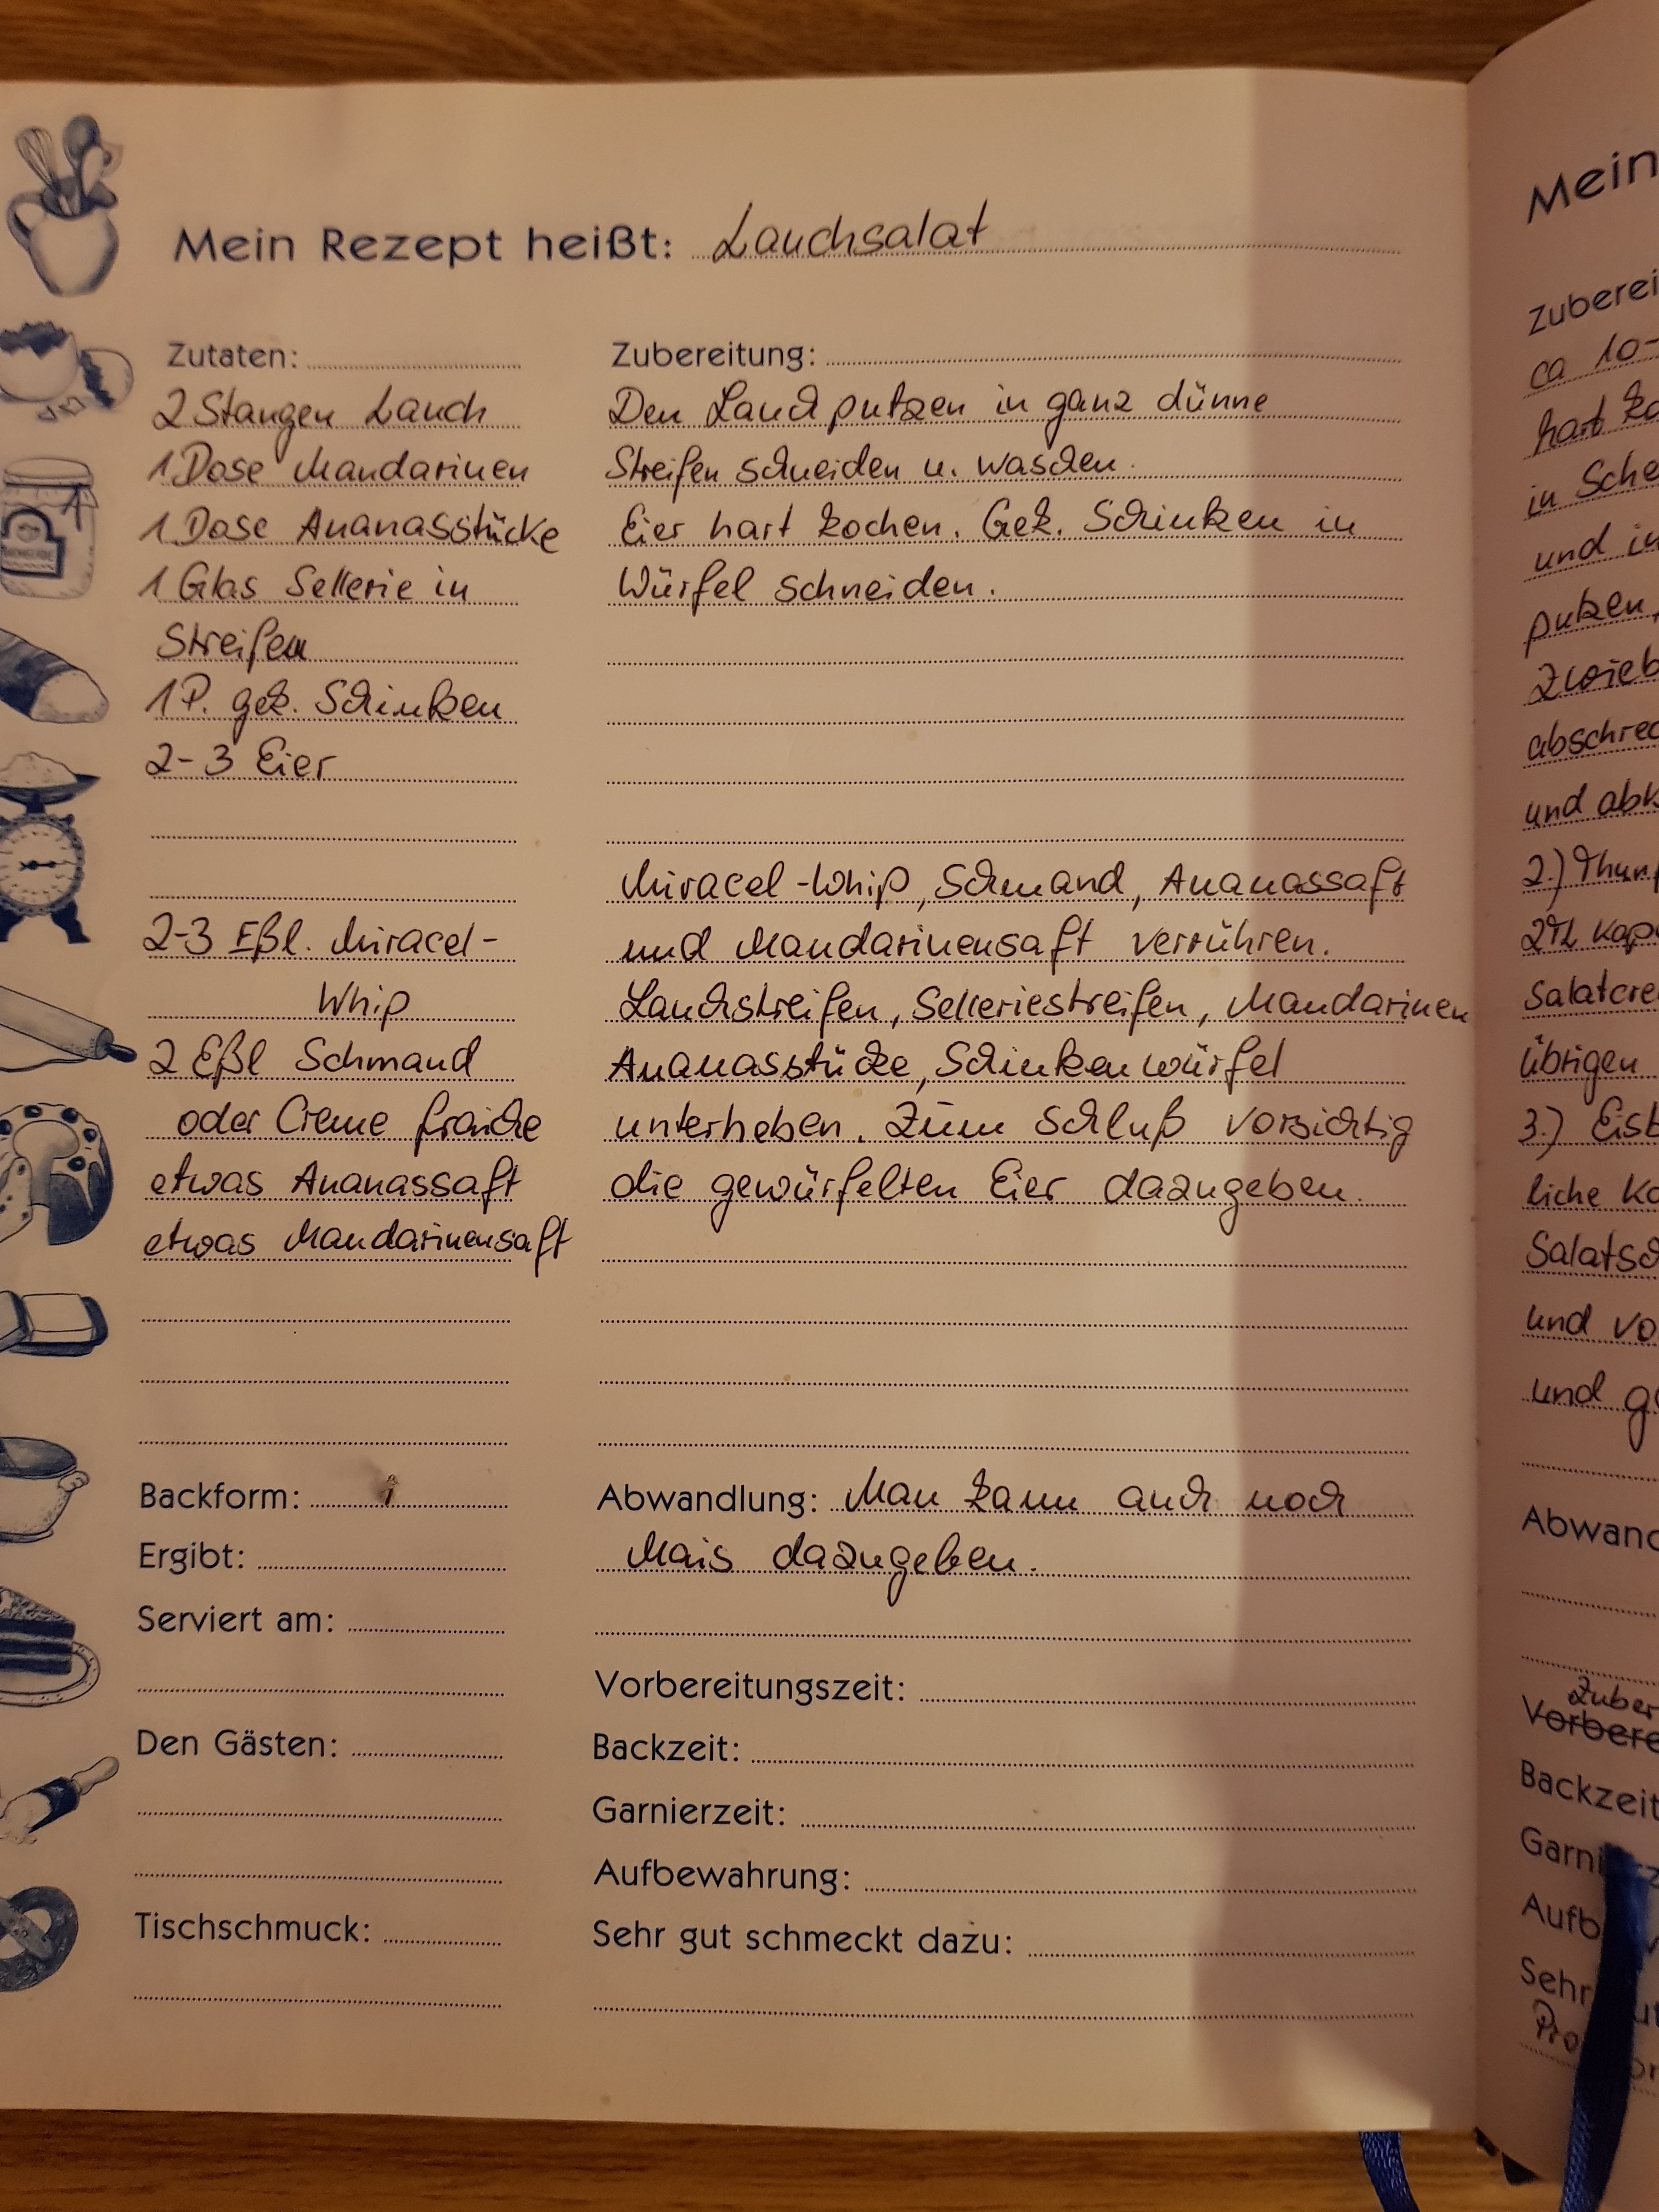 Mein Rezept heißt: Lauchsalat
Zutaten:
2 Stangen Lauch
1 Dose Mandarinen
1 Dose Ananasstücke
1 Glas Sellerie in
Streifen
1 P. gek. Schinken
2-3 Eier
2-3 Eßl. Miracel-
Whip
2 Eßl Schmand
oder Creme fraiche
etwas Ananassaft
etwas Mandarinensaft
Zubereitung:
Den Lauch putzen in ganz dünne
Streifen schneiden u. waschen.
Eier hart kochen. Gek. Schinken in
Würfel schneiden.
Miracel-Whip, Schmand, Ananassaft
und Mandarinensaft verrühren.
Lauchstreifen, Selleriestreifen, Mandarinen
Ananasstücke, Schinkenwürfel
unterheben. Zum Schluß vorsichtig
die gewürfelten Eier dazugeben.
Backform:
Ergibt:
Serviert am:
Den Gästen:
Tischschmuck:
Abwandlung: Man kann auch noch
Mais dazugeben.
Vorbereitungszeit:
Backzeit:
Garnierzeit:
Aufbewahrung:
Sehr gut schmeckt dazu:
Mein
Zuberei
ca 10-
hart ko
in Sche
und in
putzen,
Zwieb
abschrec
und abk
2.) Thunf
2TL Kap
Salatcre
übrigen
3.) Eisb
liche Ko
Salatsch
und vo
und g
Abwand
Zuber
Vorbere
Backzeit
Garni
Aufb
Sehr
Pro